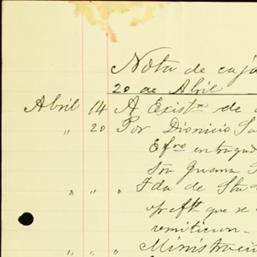 Nota de caja
20 de Abril
Abril 14 A Existª de
" 20 Por Dionicio Sa
Efvo entregad
Sra Juana
" " " Ida de Sta
que se
remitieron
" " " Ministracio